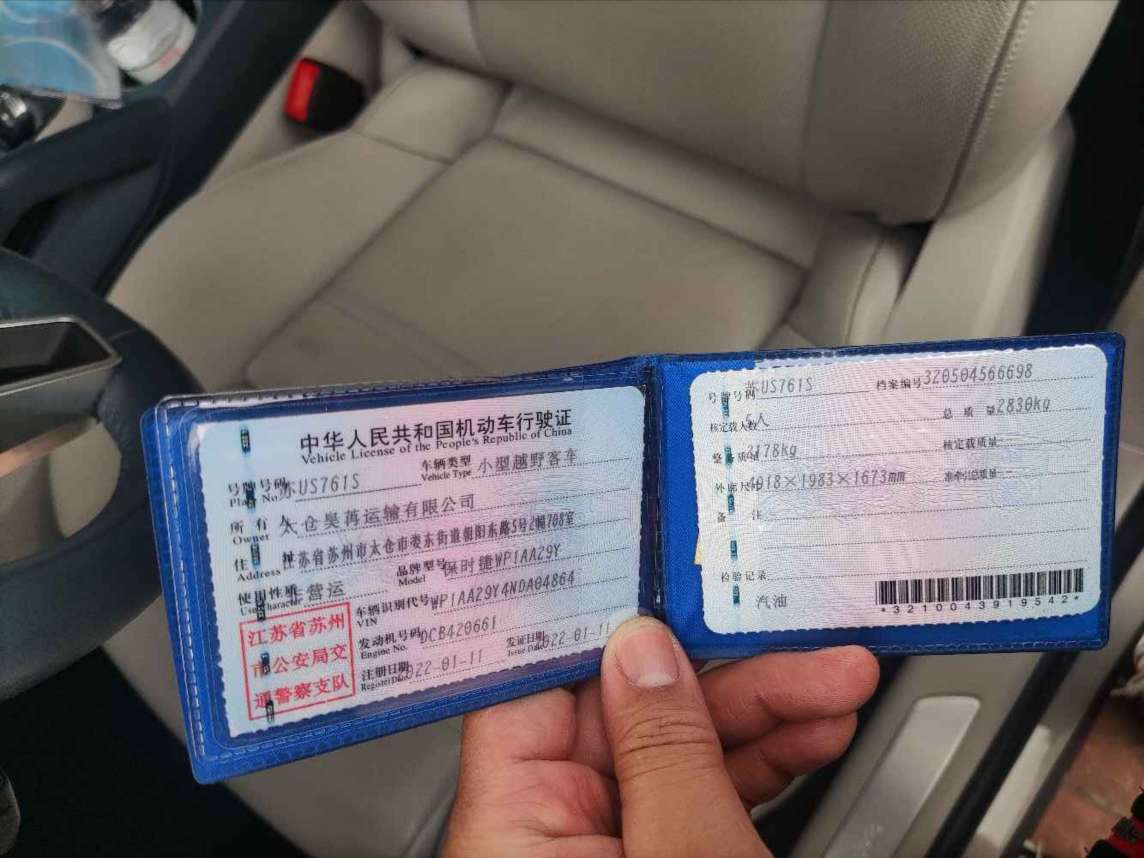 中华人民共和国机动车行驶证
Vehicle License of the People's Republic of China
号牌号码 苏US761S
Plate No.
车辆类型 小型越野客车
Vehicle Type
所有人 太仓昊苒运输有限公司
Owner
住 江苏省苏州市太仓市娄东街道朝阳东路5号2幢708室
Address
使用性质 非营运
Use Character
品牌型号 保时捷WP1AA29Y
Model
车辆识别代号 WP1AA29Y4NDA04864
VIN
发动机号码 DCB420661
Engine No.
注册日期 022-01-11
Register Date
发证日期 022-01-11
Issue Date
江苏省苏州
市公安局交
通警察支队
号牌号码 苏US761S
档案编号 320504566698
核定载人数 5人
总质量 2830kg
整备质量 2178kg
核定载质量 --
外廓尺寸 4918×1983×1673mm
准牵引总质量 --
备注
检验记录
汽油
*3210043919542*